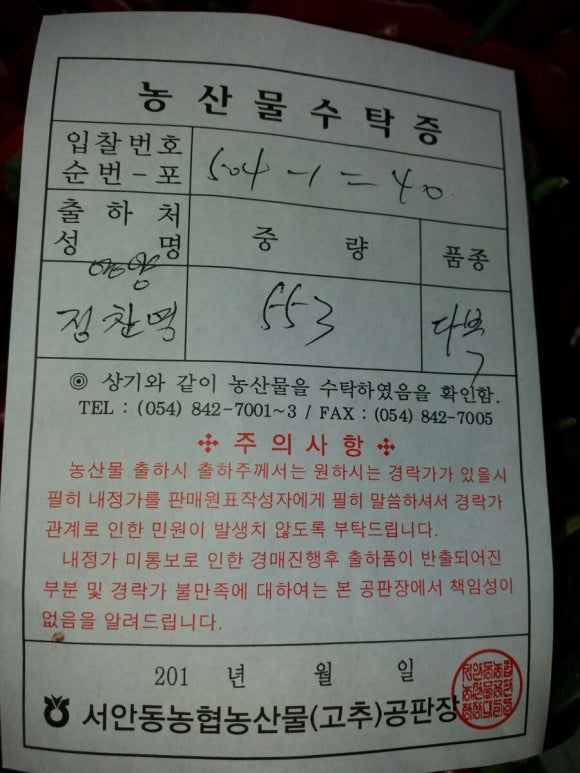 농산물수탁증
입찰번호
순번-포
504-1=40
출하처
성명
중량
품종
영양
정찬묵
553
다복
◎ 상기와 같이 농산물을 수탁하였음을 확인함.
TEL : (054) 842-7001~3 / FAX : (054) 842-7005
주의사항
농산물 출하시 출하주께서는 원하시는 경락가가 있을시
필히 내정가를 판매원표작성자에게 필히 말씀하셔서 경락가
관계로 인한 민원이 발생치 않도록 부탁드립니다.
내정가 미통보로 인한 경매진행후 출하품이 반출되어진
부분 및 경락가 불만족에 대하여는 본 공판장에서 책임성이
없음을 알려드립니다.
201 년 월 일
서안동농협농산물(고추)공판장